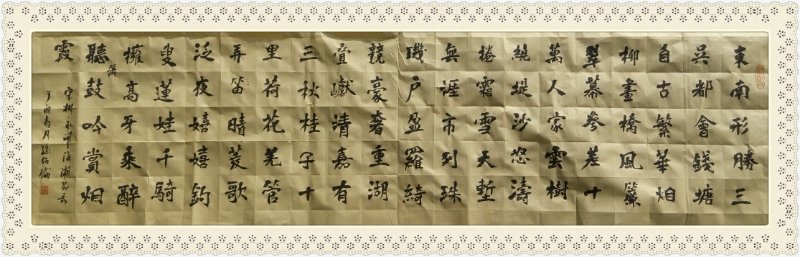 東南形勝三
吳都會錢塘
自古繁華烟
柳畫橋風簾
翠幕參差十
萬人家雲樹
繞堤沙怒濤
捲霜雪天塹
無涯市列珠
璣戶盈羅綺
競豪奢重湖
疊巘清嘉有
三秋桂子十
里荷花羌管
弄笛晴菱歌
泛夜嬉嬉釣
叟蓮娃千騎
擁高牙乘醉
聽簫鼓吟賞烟
霞
宋柳永望海潮
丁酉春月